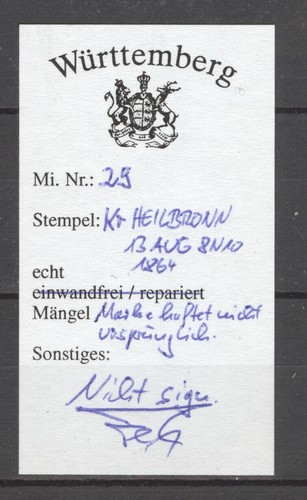 Württemberg
Mi. Nr.: 29
Stempel: Kr HEILBRONN
13 AUG 8N10
1864
echt
einwandfrei / repariert
Mängel Marke haftet nicht
ursprünglich.
Sonstiges:
Nicht sign.